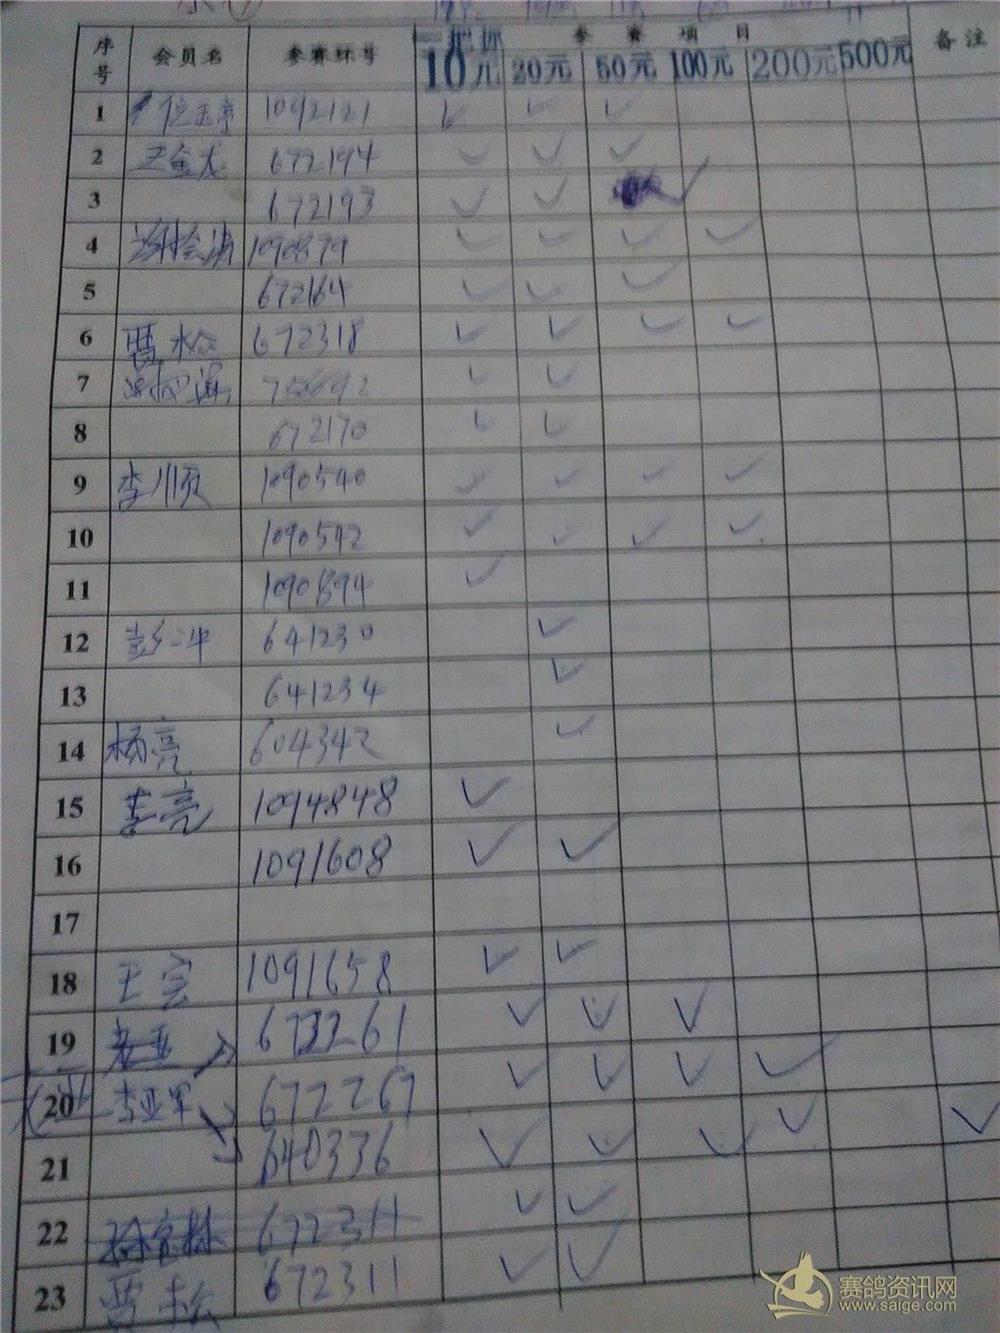 序号 会员名 参赛环号 参赛项目 备注
一把标
10元 20元 50元 100元 200元 500元
1 1092121 ✓ ✓ ✓
2 王金龙 672194 ✓ ✓ ✓
3 672193 ✓ ✓ ✓
4 1090879 ✓ ✓ ✓ ✓
5 672164 ✓ ✓ ✓
6 贾松 672318 ✓ ✓ ✓ ✓
7 ✓ ✓
8 672170 ✓ ✓
9 李顺 1090540 ✓ ✓ ✓ ✓
10 1090542 ✓ ✓ ✓ ✓
11 1090894 ✓
12 彭冲 641230 ✓
13 641234 ✓
14 杨亮 604342 ✓
15 李亮 1094848 ✓
16 1091608 ✓ ✓
17
18 王宫 1091658 ✓ ✓
19 672261 ✓ ✓ ✓
20 李亚军 672267 ✓ ✓ ✓ ✓
21 640336 ✓ ✓ ✓ ✓ ✓
22 672311 ✓ ✓
23 贾松 672311 ✓ ✓
赛鸽资讯网
www.saige.com